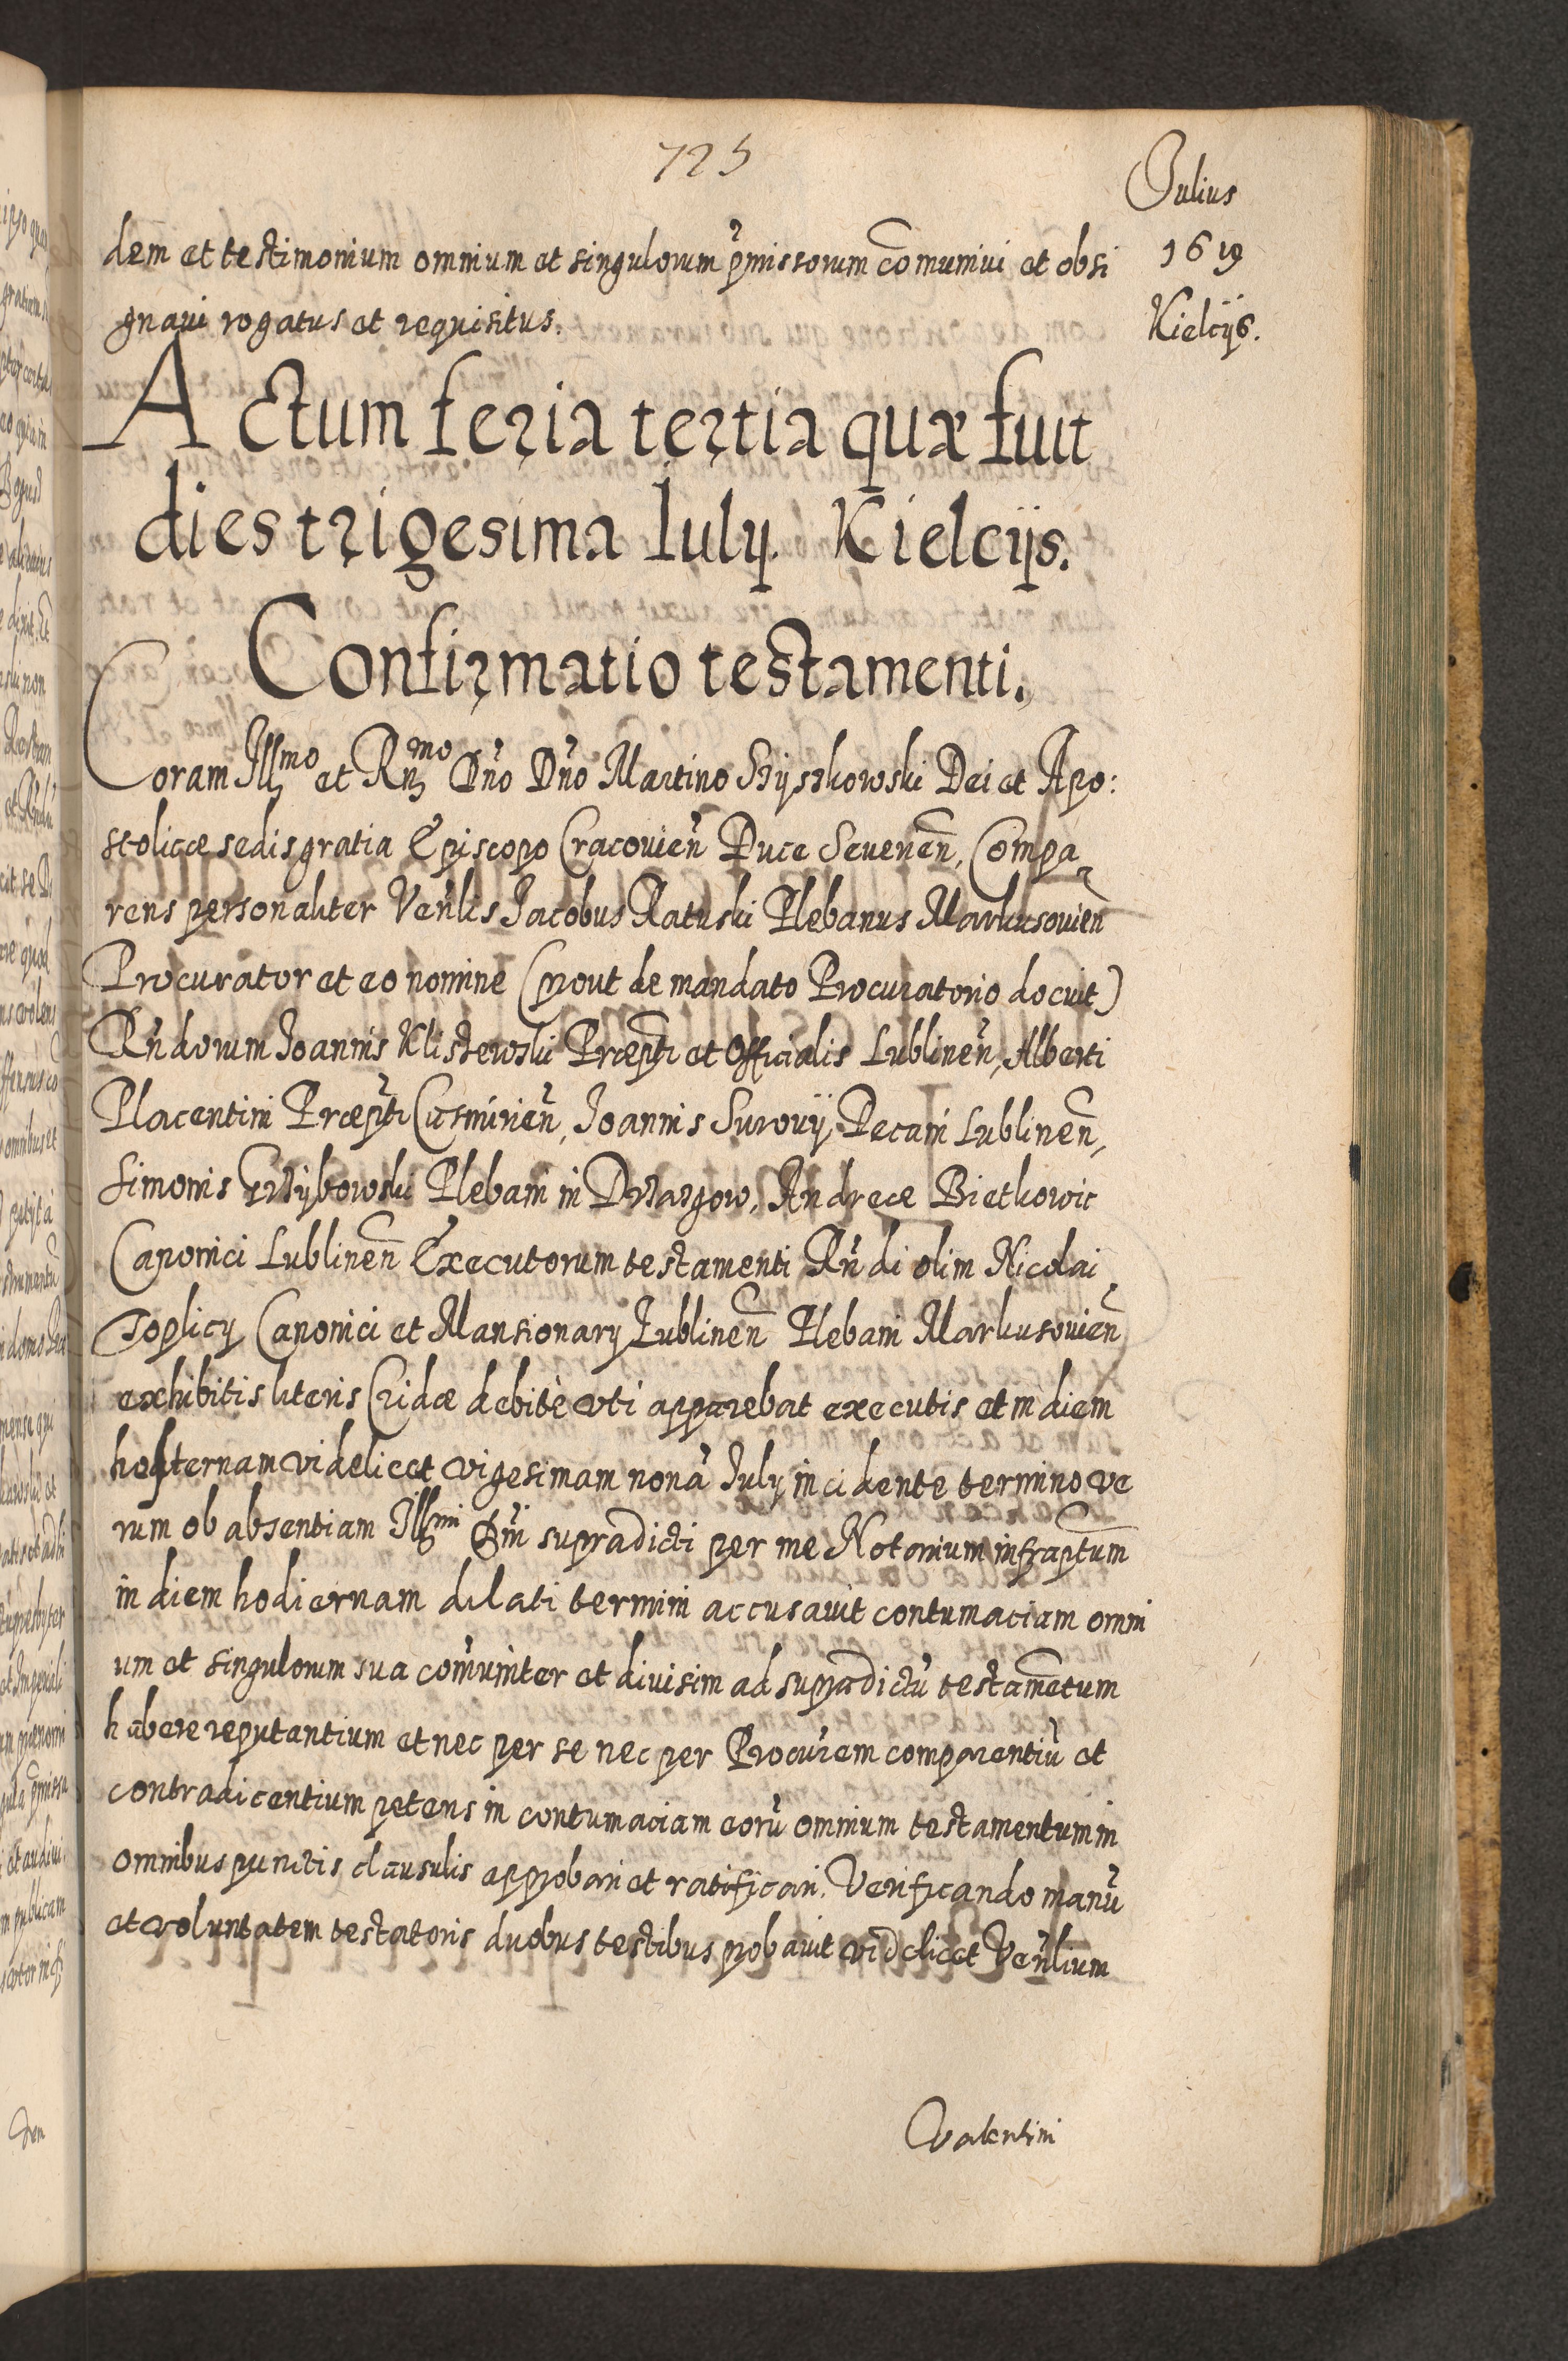 725
Julius
1619
Kielcijs.
dem et testimonium omnium et singulorum p̃missorum cõmunivi et obsi
gnavi rogatus et requisitus.
Actum feria tertia quæ fuit
dies trigesima Iulij. Kielcijs.
Confirmatio testamenti.
Coram Illmo et Rnmo Dño Dño Martino Szyszkowski Dei et Apo:
stolicæ sedis gratia Episcopo Cracovien̄ Duce Severien̄, Compa
rens personaliter Ven̄lis Jacobus Ratuski Plebanus Markusovien̄
Procurator et eo nomine (prout de mandato Procuratorio docuit)
Rn̄dorum Joannis Klistewski Præpti et Officialis Lublinen̄, Alberti
Placentini Præpti Cusmirien̄, Joannis Surovij Decani Lublinen̄,
Simonis Grzybowski Plebani in Drzazgow, Andreæ Bietkowic
Canonici Lublinen̄ Executorum testamenti Rn̄di olim Nicolai
Toplicy Canonici et Mansionarij Lublinen̄ Plebani Markusovien̄
exhibitis literis Cridæ debitè vti apparebat executis et in diem
hesternam videlicet vigesimam nonā July incidente termino ve
rum ob absentiam Illmi Dni supradicti per me Notarium infraptum
in diem hodiernam dilati termini accusavit contumaciam omni
um et singulorum sua com̄uniter et divisim ad supradictū testamētum
habere reputantium et nec per se nec per Procurem comparentiū et
contradicentium petens in contumaciam eorū omnium testamentum in
omnibus punctis clausulis approbari et ratificari. Verificando manū
et voluntatem testatoris duobus testibus probavit videlicet Ven̄lium
Valentini